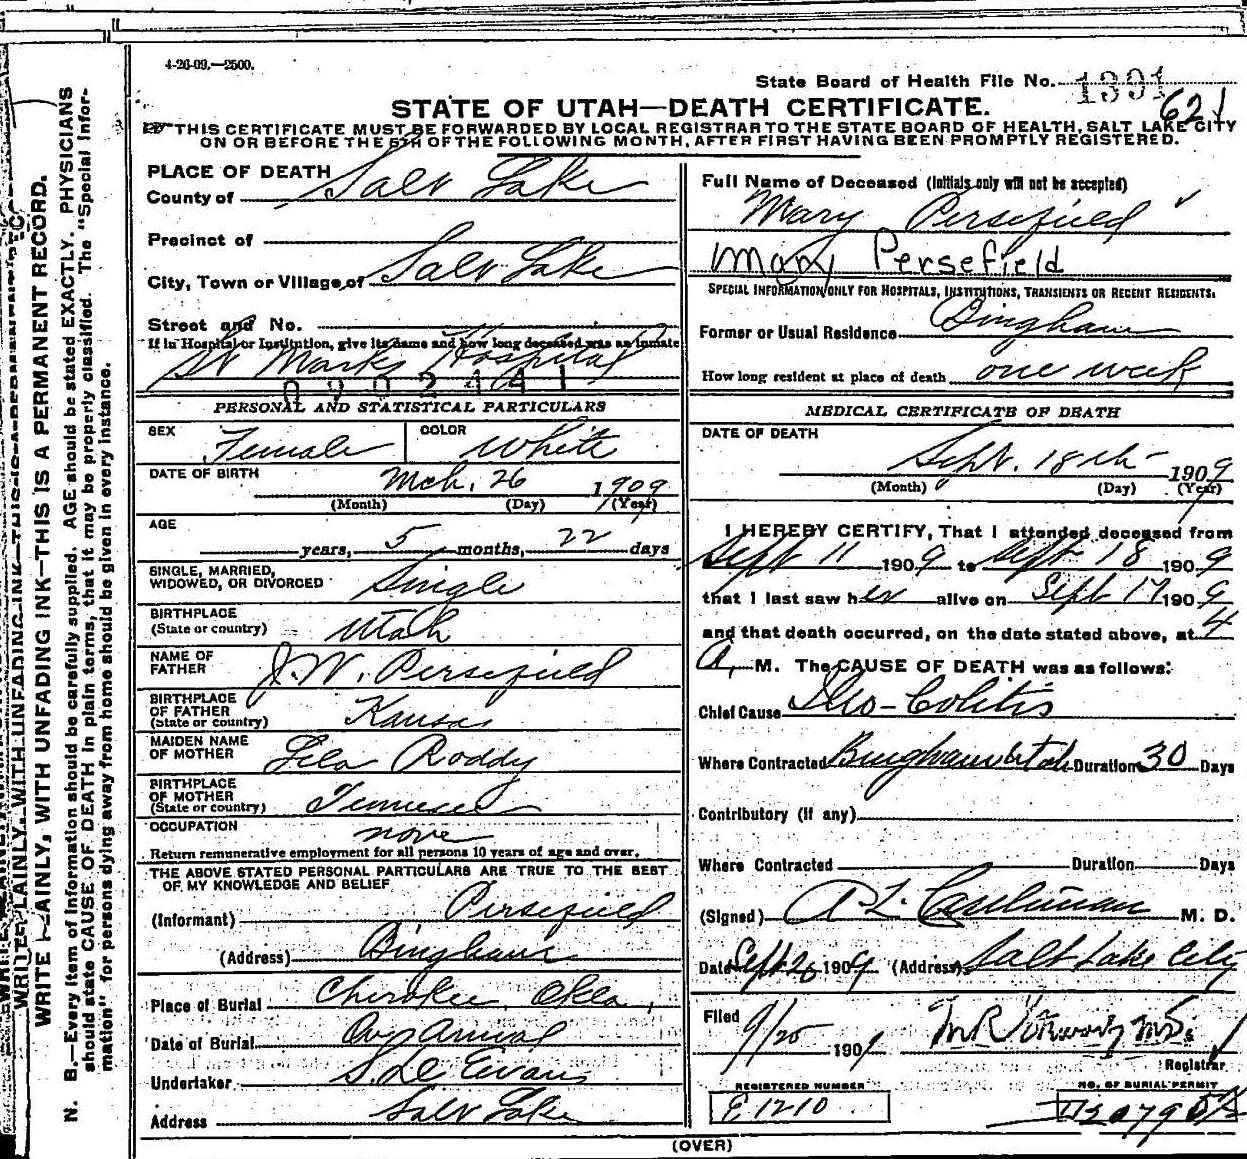 4-26-09.—2500.
State Board of Health File No. 1391
621
STATE OF UTAH—DEATH CERTIFICATE.
THIS CERTIFICATE MUST BE FORWARDED BY LOCAL REGISTRAR TO THE STATE BOARD OF HEALTH, SALT LAKE CITY
ON OR BEFORE THE 5TH OF THE FOLLOWING MONTH, AFTER FIRST HAVING BEEN PROMPTLY REGISTERED.
WRITE PLAINLY, WITH UNFADING INK—THIS IS A PERMANENT RECORD.
N. B.—Every item of information should be carefully supplied. AGE should be stated EXACTLY. PHYSICIANS
should state CAUSE OF DEATH in plain terms, that it may be properly classified. The "Special Infor-
mation" for persons dying away from home should be given in every instance.
PLACE OF DEATH
County of Salt Lake
Precinct of
City, Town or Village of Salt Lake
Street and No.
If in Hospital or Institution, give its name and how long deceased was an inmate
St Marks Hospital
0902441
PERSONAL AND STATISTICAL PARTICULARS
SEX Female COLOR White
DATE OF BIRTH Mch. 26 1909
(Month) (Day) (Year)
AGE
years, 5 months, 22 days
SINGLE, MARRIED,
WIDOWED, OR DIVORCED Single
BIRTHPLACE
(State or country) Utah
NAME OF
FATHER J. W. Persefield
BIRTHPLACE
OF FATHER
(State or country) Kansas
MAIDEN NAME
OF MOTHER Lela Roddy
BIRTHPLACE
OF MOTHER
(State or country) Tennessee
OCCUPATION none
Return remunerative employment for all persons 10 years of age and over.
THE ABOVE STATED PERSONAL PARTICULARS ARE TRUE TO THE BEST
OF MY KNOWLEDGE AND BELIEF
(Informant) Persefield
(Address) Bingham
Place of Burial Cherokee Okla.
Date of Burial On Arrival
Undertaker S. D. Evans
Address Salt Lake
Full Name of Deceased (Initials only will not be accepted)
Mary Persefield
Mary Persefield
SPECIAL INFORMATION ONLY FOR HOSPITALS, INSTITUTIONS, TRANSIENTS OR RECENT RESIDENTS.
Former or Usual Residence Bingham
How long resident at place of death one week
MEDICAL CERTIFICATE OF DEATH
DATE OF DEATH
Sept. 18th 1909
(Month) (Day) (Year)
I HEREBY CERTIFY, That I attended deceased from
Sept 11 1909 to Sept 18 1909
that I last saw her alive on Sept 17 1909
and that death occurred, on the date stated above, at 4
A. M. The CAUSE OF DEATH was as follows:
Chief Cause Ileo-Colitis
Where Contracted Bingham Utah Duration 30 Days
Contributory (if any)
Where Contracted Duration Days
(Signed) A L M. D.
Date Sept 20 1909 (Address) Salt Lake City
Filed
9/20 1909
Registrar
REGISTERED NUMBER
E 1210
NO. OF BURIAL PERMIT
(OVER)